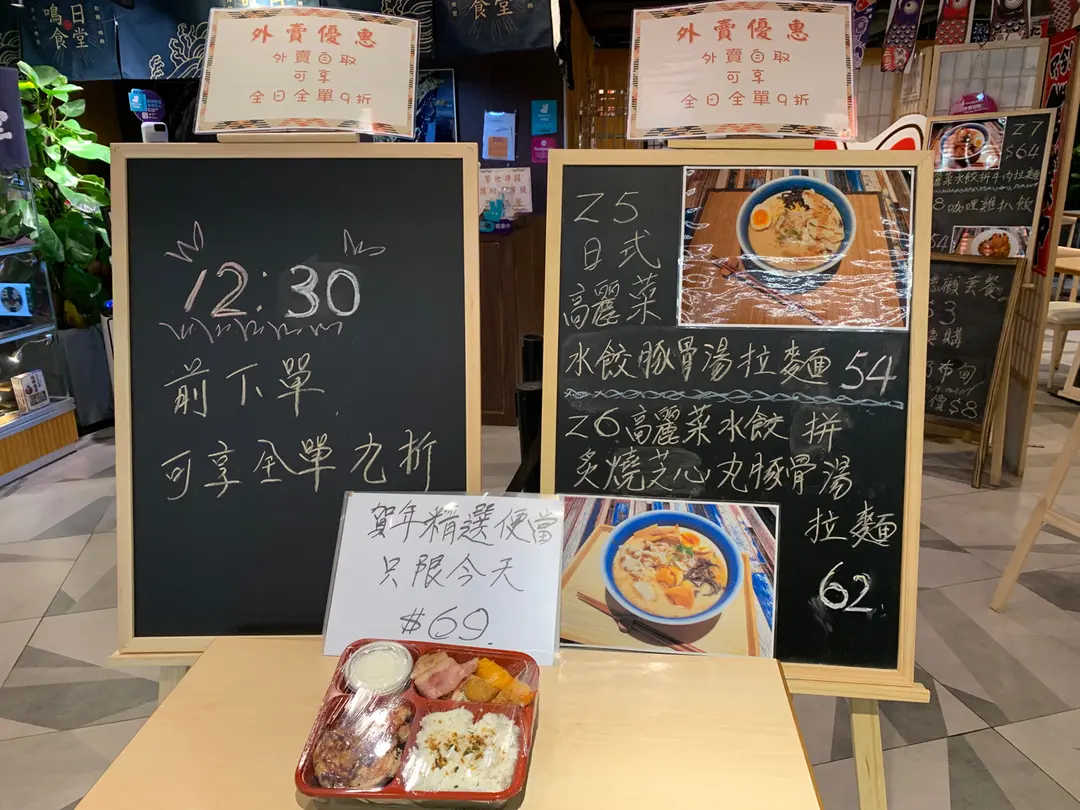 鳴日
食堂
食堂
外賣優惠
外賣自取
可享
全日全單9折
外賣優惠
外賣自取
可享
全日全單9折
12:30
前下單
可享全單九折
Z5
日式
高麗菜
水餃豚骨湯拉麵 54
Z6高麗菜水餃 拼
炙燒芝心丸豚骨湯
拉麵
62
賀年精選便當
只限今天
$69
Z7
$64
咖哩雞扒飯
54
素餐
購
布甸
價$8